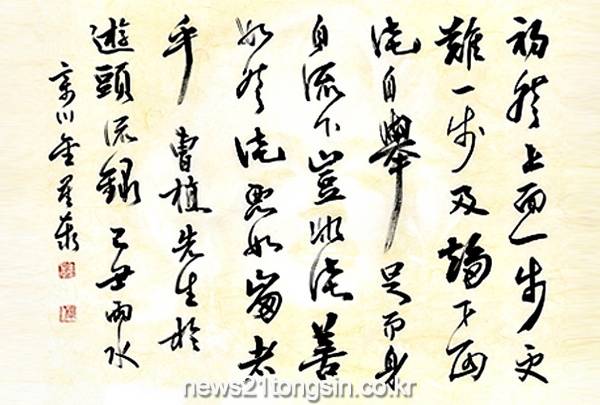 初登上面一步更
難一步及趨下面
徒自擧足而身
自流下豈非從善
如登從惡如崩者
乎 曹植先生於
遊頭流錄 己丑雨水
川金
news21tongsin.co.kr